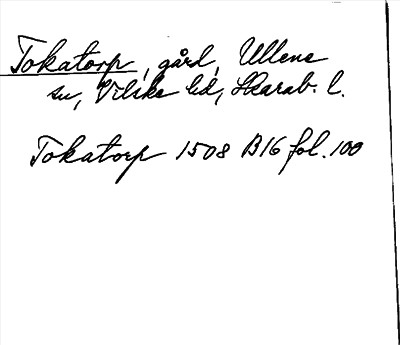 Tokatorp, gård, Ullene
sn, Vilske hd, Skarab. l.
Tokatorp 1508 B16 fol. 100